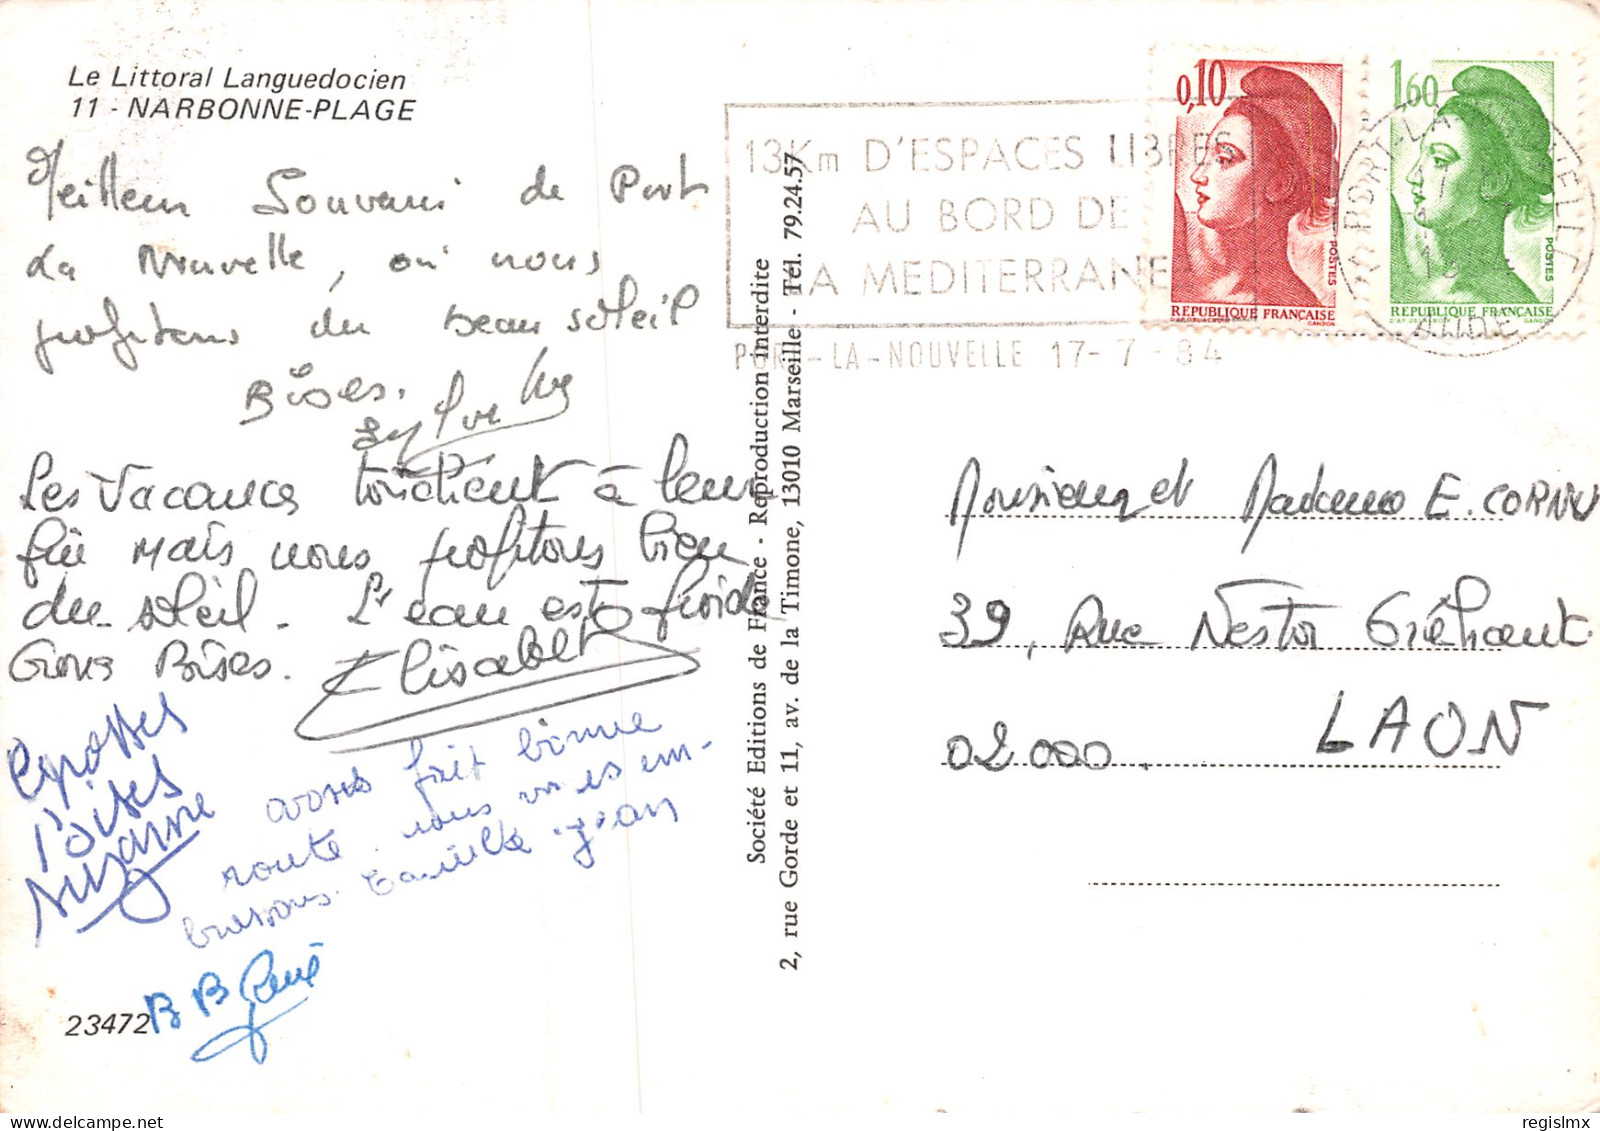 Le Littoral Languedocien
11 - NARBONNE-PLAGE
Meilleur Souvenir de Port
La Nouvelle, où nous
profitons du Beau soleil
Bises.
Sylvie
Les Vacances touchent à leur
fin mais nous profitons bien
du soleil. L'eau est froide
Gros Bises.
Elisabeth
grosses
bises
Suzanne
avons fait bonne
route. nous vous em-
brassons. Camille Jean
B B René
23472
Société Editions de France - Reproduction interdite
2, rue Gorde et 11, av. de la Timone, 13010 Marseille - Tél. 79.24.57
13Km D'ESPACES LIBRES
AU BORD DE
LA MEDITERRANEE
PORT-LA-NOUVELLE 17-7-84
0,10
POSTES
REPUBLIQUE FRANÇAISE
1,60
POSTES
REPUBLIQUE FRANÇAISE
PORT-LA-NOUVELLE
AUDE
Monsieur et Madame E. CORNU
39, Rue Nestor Gréhant
02000. LAON
regislmx